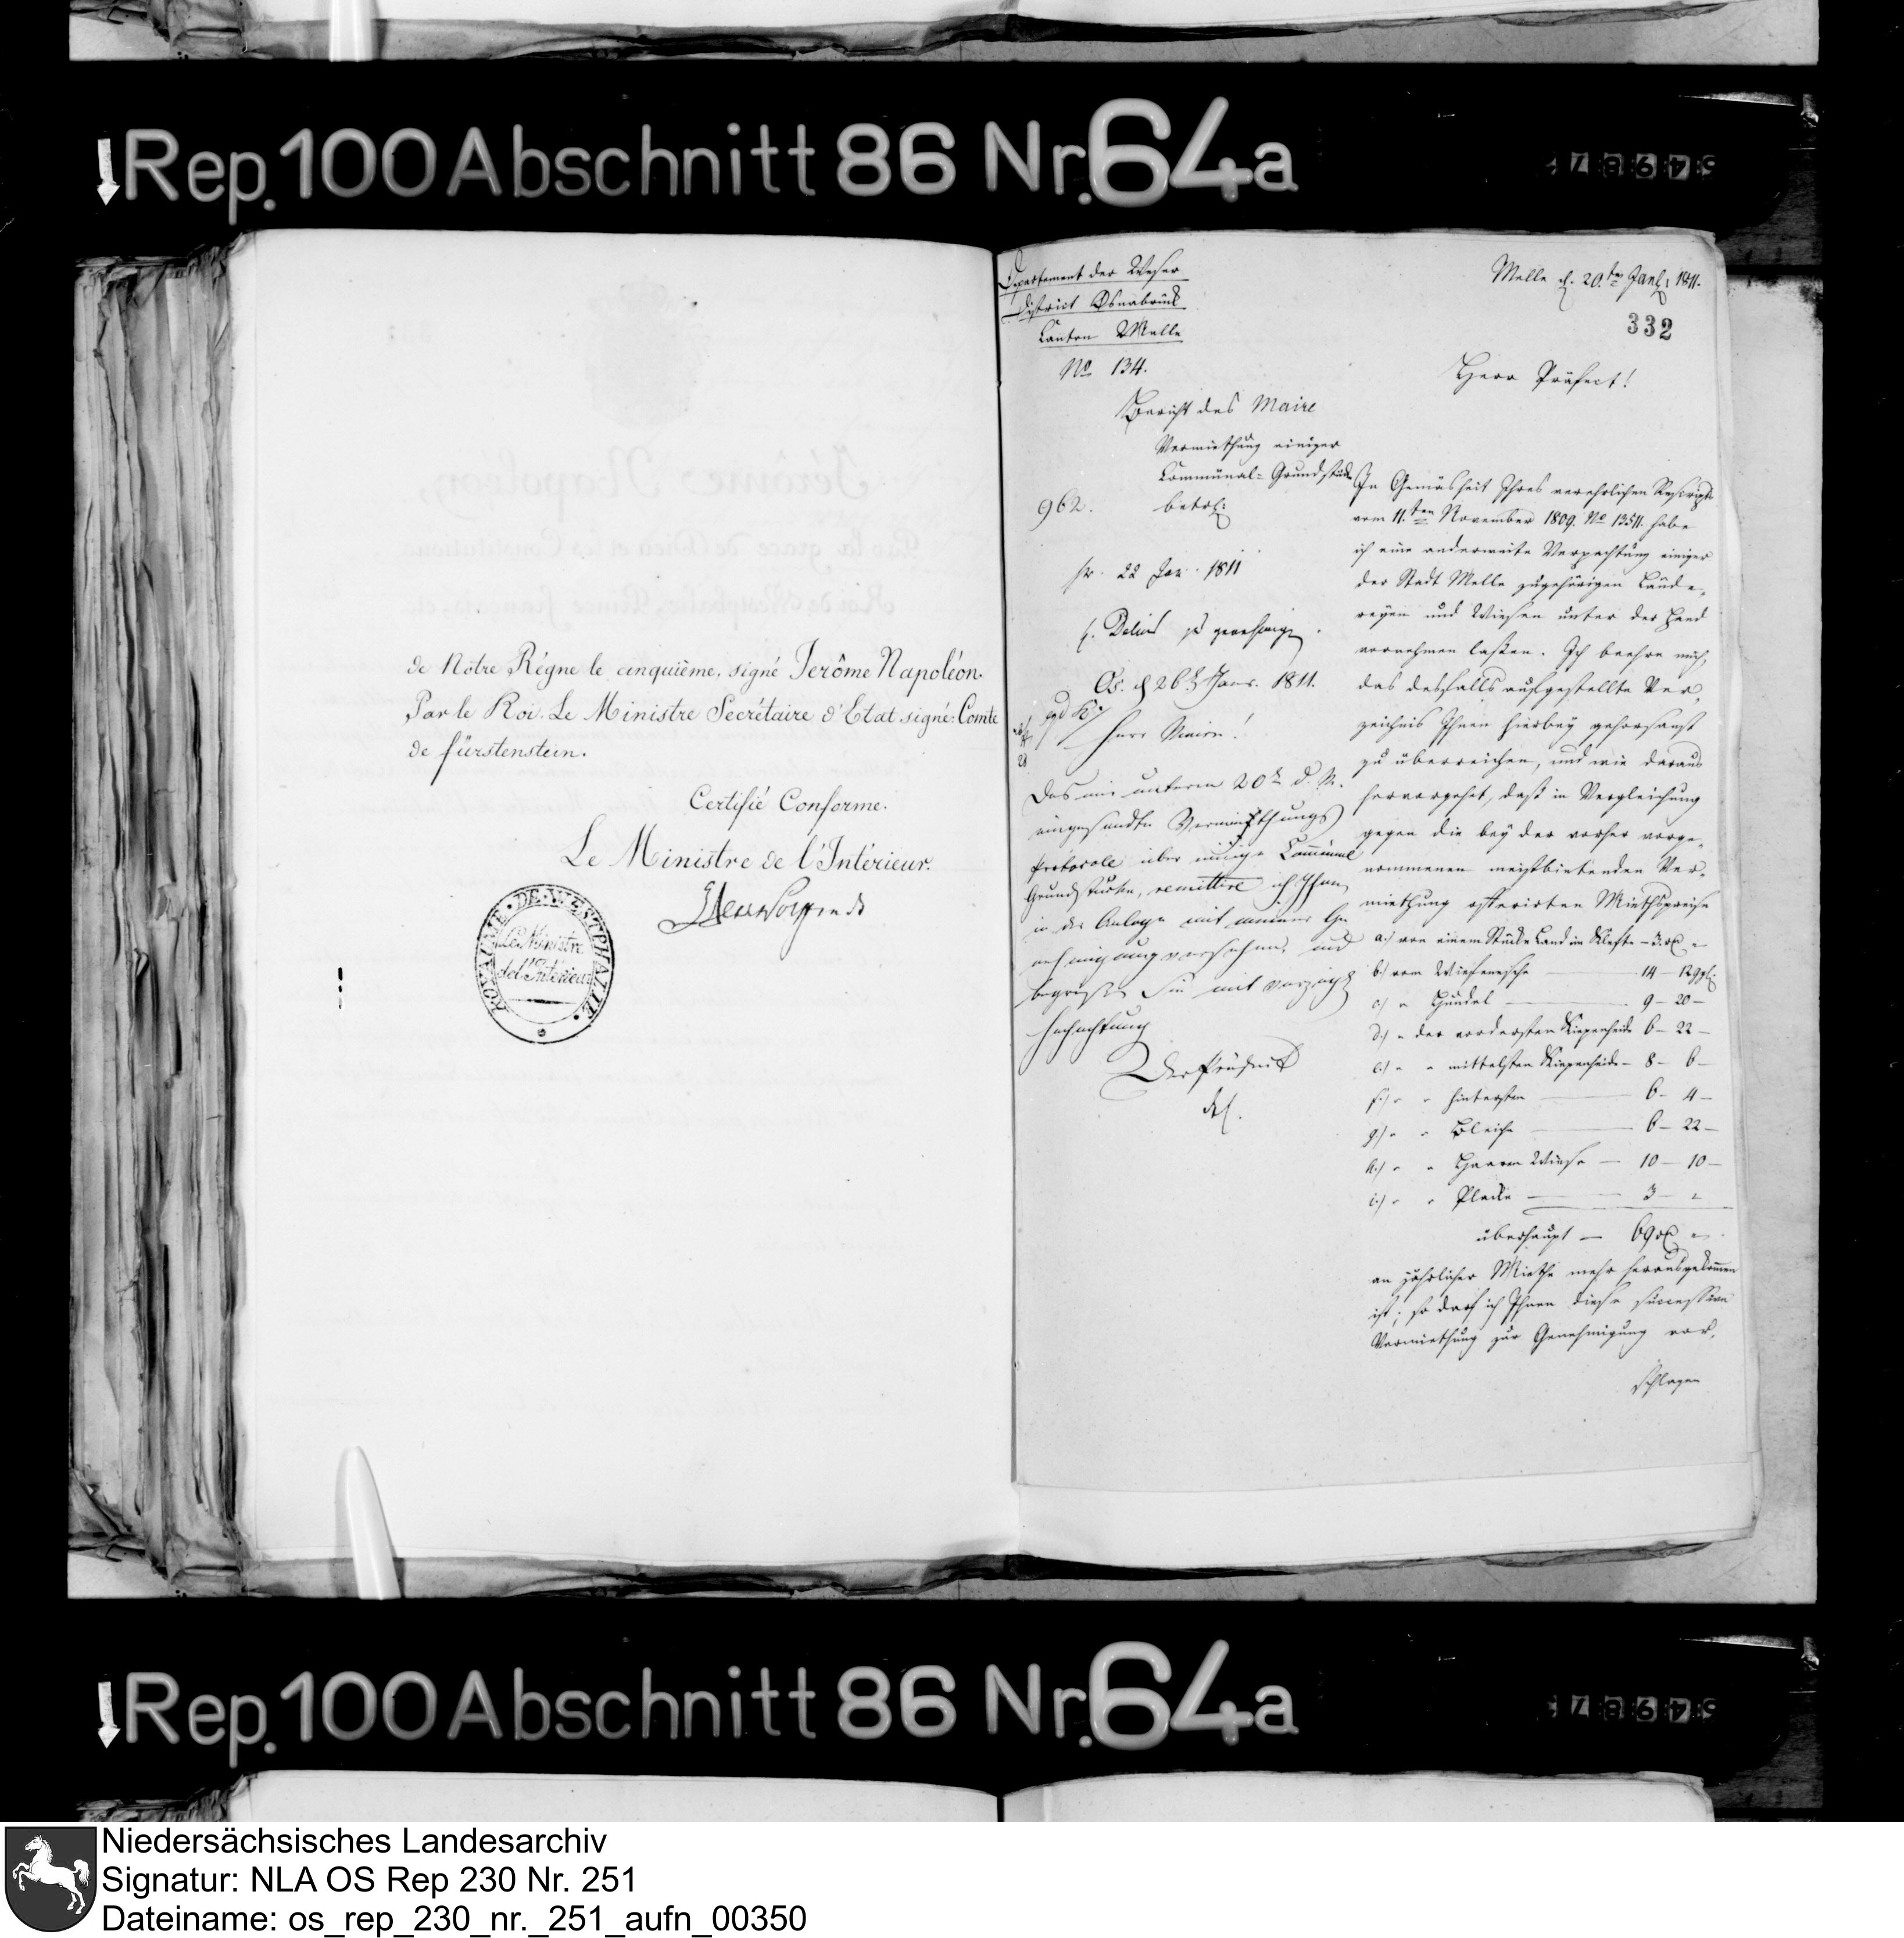 Rep. 100 Abschnitt 86 Nr. 64a
de Nôtre Régne le cinquième, signé Jerôme Napoléon.
Par le Roi. Le Ministre Secrétaire d'Etat signé: Comte
de fürstenstein.
Certifié Conforme.
Le Ministre de l'Intérieur.
ROYAUME · DE · WESTPHALIE ·
Le Ministre
de l'Intérieur
Departement der Weser
District Osnabrück
Canton Melle
No 134.
Bericht des Maire
Vermiethung einiger
Communal-Grundstücke
betr:
962.
pr. 22 Jan. 1811
Os. d 26t Janr. 1811.
Herr Maire!
Das mir unterm 20t d. M.
eingesandte Vermiethungs
Protocoll über einige Communal
Grundstücke, remittire ich Ihnen
in der Anlage mit meiner Ge
nehmigung versehen, und
begrüße Sie mit vorzügl
Hochachtung
Der Präfect
Melle d. 20.ten Jan: 1811.
332
Herr Präfect!
In Gemäsheit Ihres verehrlichen Rescripts
vom 11.ten November 1809. No 13511. habe
ich eine anderweite Verpachtung einiger
der Stadt Melle zugehörigen Lände-
reyen und Wiesen unter der Hand
vornehmen laßen. Ich beehre mich,
das desfalls aufgestellte Ver-
zeichnis Ihnen hierbey gehorsamst
zu überreichen, und wie daraus
hervorgehet, daß in Vergleichung
gegen die bey der vorher vorge-
nommenen meistbietenden Ver-
miethung offerirten Miethspreise
a.) von einem Stücke Land im
b.) vom 14 – 12 ggl:
c.) " 9 – 20 –
d.) " der vordersten Kiepenheide 6 – 22 –
e.) " " mittelsten Kiepenheide – 8 – 6 –
f.) " " hintersten 6 – 4 –
g.) " " Bleiche 6 – 22 –
h.) " " Herren Wiese – 10 – 10 –
i.) " " Placke 3 – "
überhaupt – 69 "
an jährlicher Miethe mehr herausgekommen
ist; so darf ich Ihnen diese successive
Vermiethung zur Genehmigung vor-
schlagen
Rep. 100 Abschnitt 86 Nr. 64a
Niedersächsisches Landesarchiv
Signatur: NLA OS Rep 230 Nr. 251
Dateiname: os_rep_230_nr._251_aufn_00350